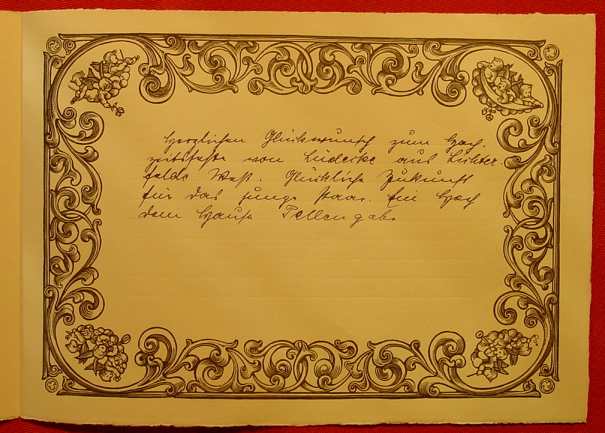 Herzlichen Glückwunsch zum Hoch-
zeitsfeste von Lüdecke aus Lichter-
felde West. Glückliche Zukunft
für das junge Paar. Ein Hoch
dem Hause Tellengabe